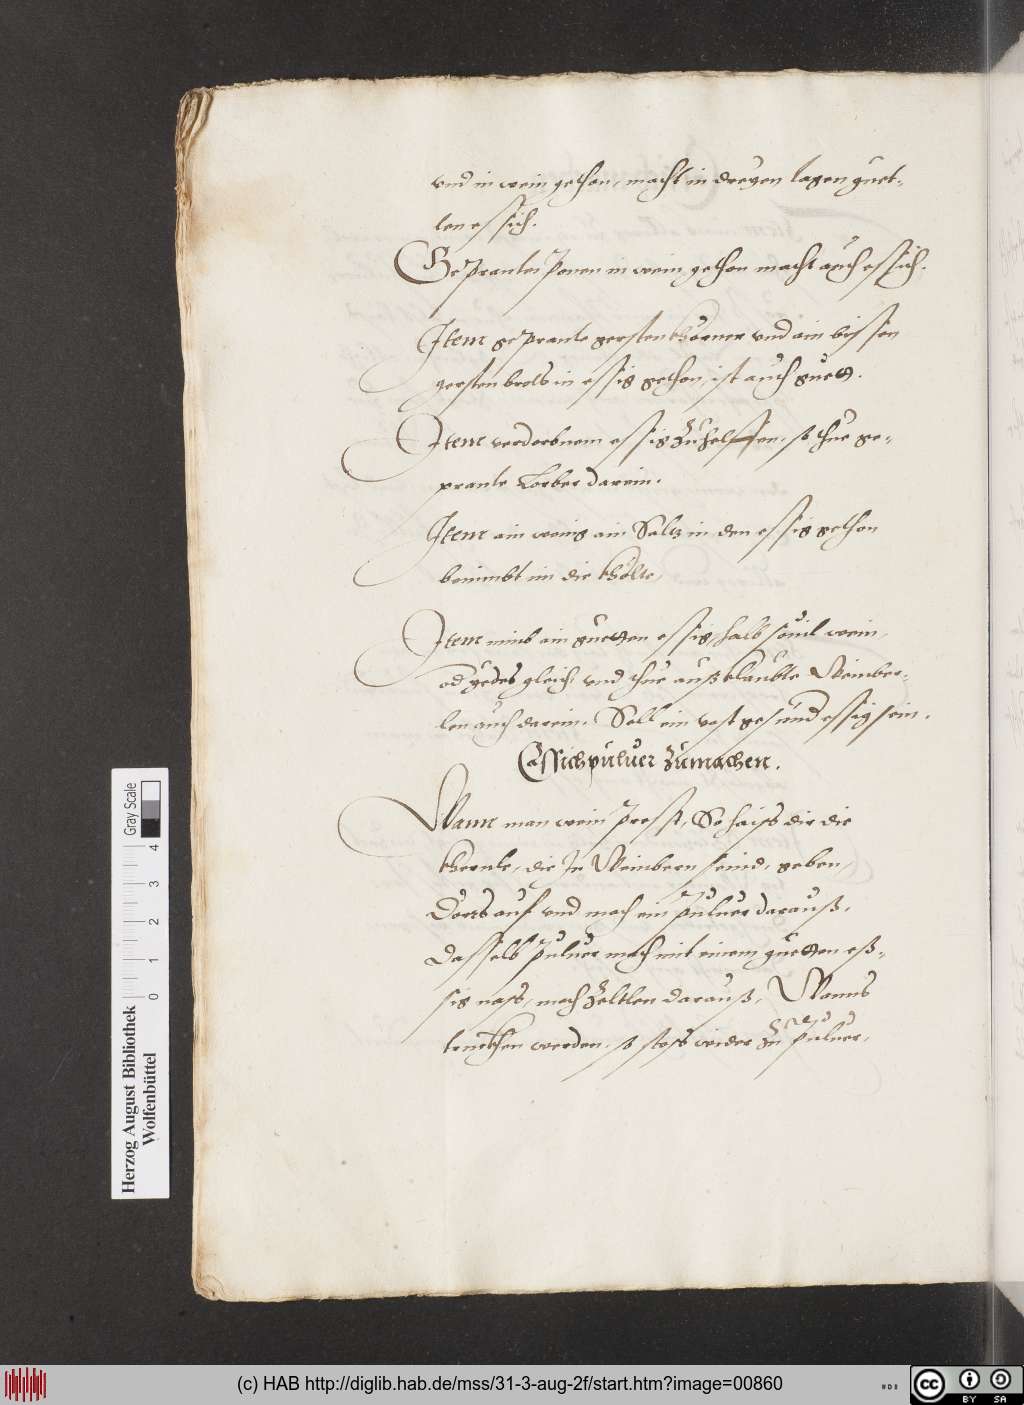 vnd in wein gethon, macht in dreyen tagen guet-
ten essich.
Geprante Ponen in wein gethon macht auch essich.
Item geprante gersten khörner vnd ain bissen
gersten brots in essig gethon, ist auch guett.
Item verdorbnem essig zu helffen, so thue ge-
prante Lorber darein.
Item ain wenig ain Saltz in den essig gethon
benimbt im die khölte,
Item nimb ain guetten essig, halb souil wein,
od yedes gleich vnd thue außklaubte Weinber-
len auch darein. Soll ein vast gesund essig sein.
Essich puluer zumachen.
Wann man wein presst, So haiss dir die
khernle, die In Weinbern seind, geben,
Dörrs auf vnd mach ein Puluer darauß,
Dasselb Puluer mach mit einem guetten eß-
sig nass, mach Zeltlen darauß, Wanns
truckhen werden, so stoss wider zu Puluer,
Herzog August Bibliothek
Wolfenbüttel
0 1 2 3 4
Gray Scale
(c) HAB http://diglib.hab.de/mss/31-3-aug-2f/start.htm?image=00860
cc BY SA